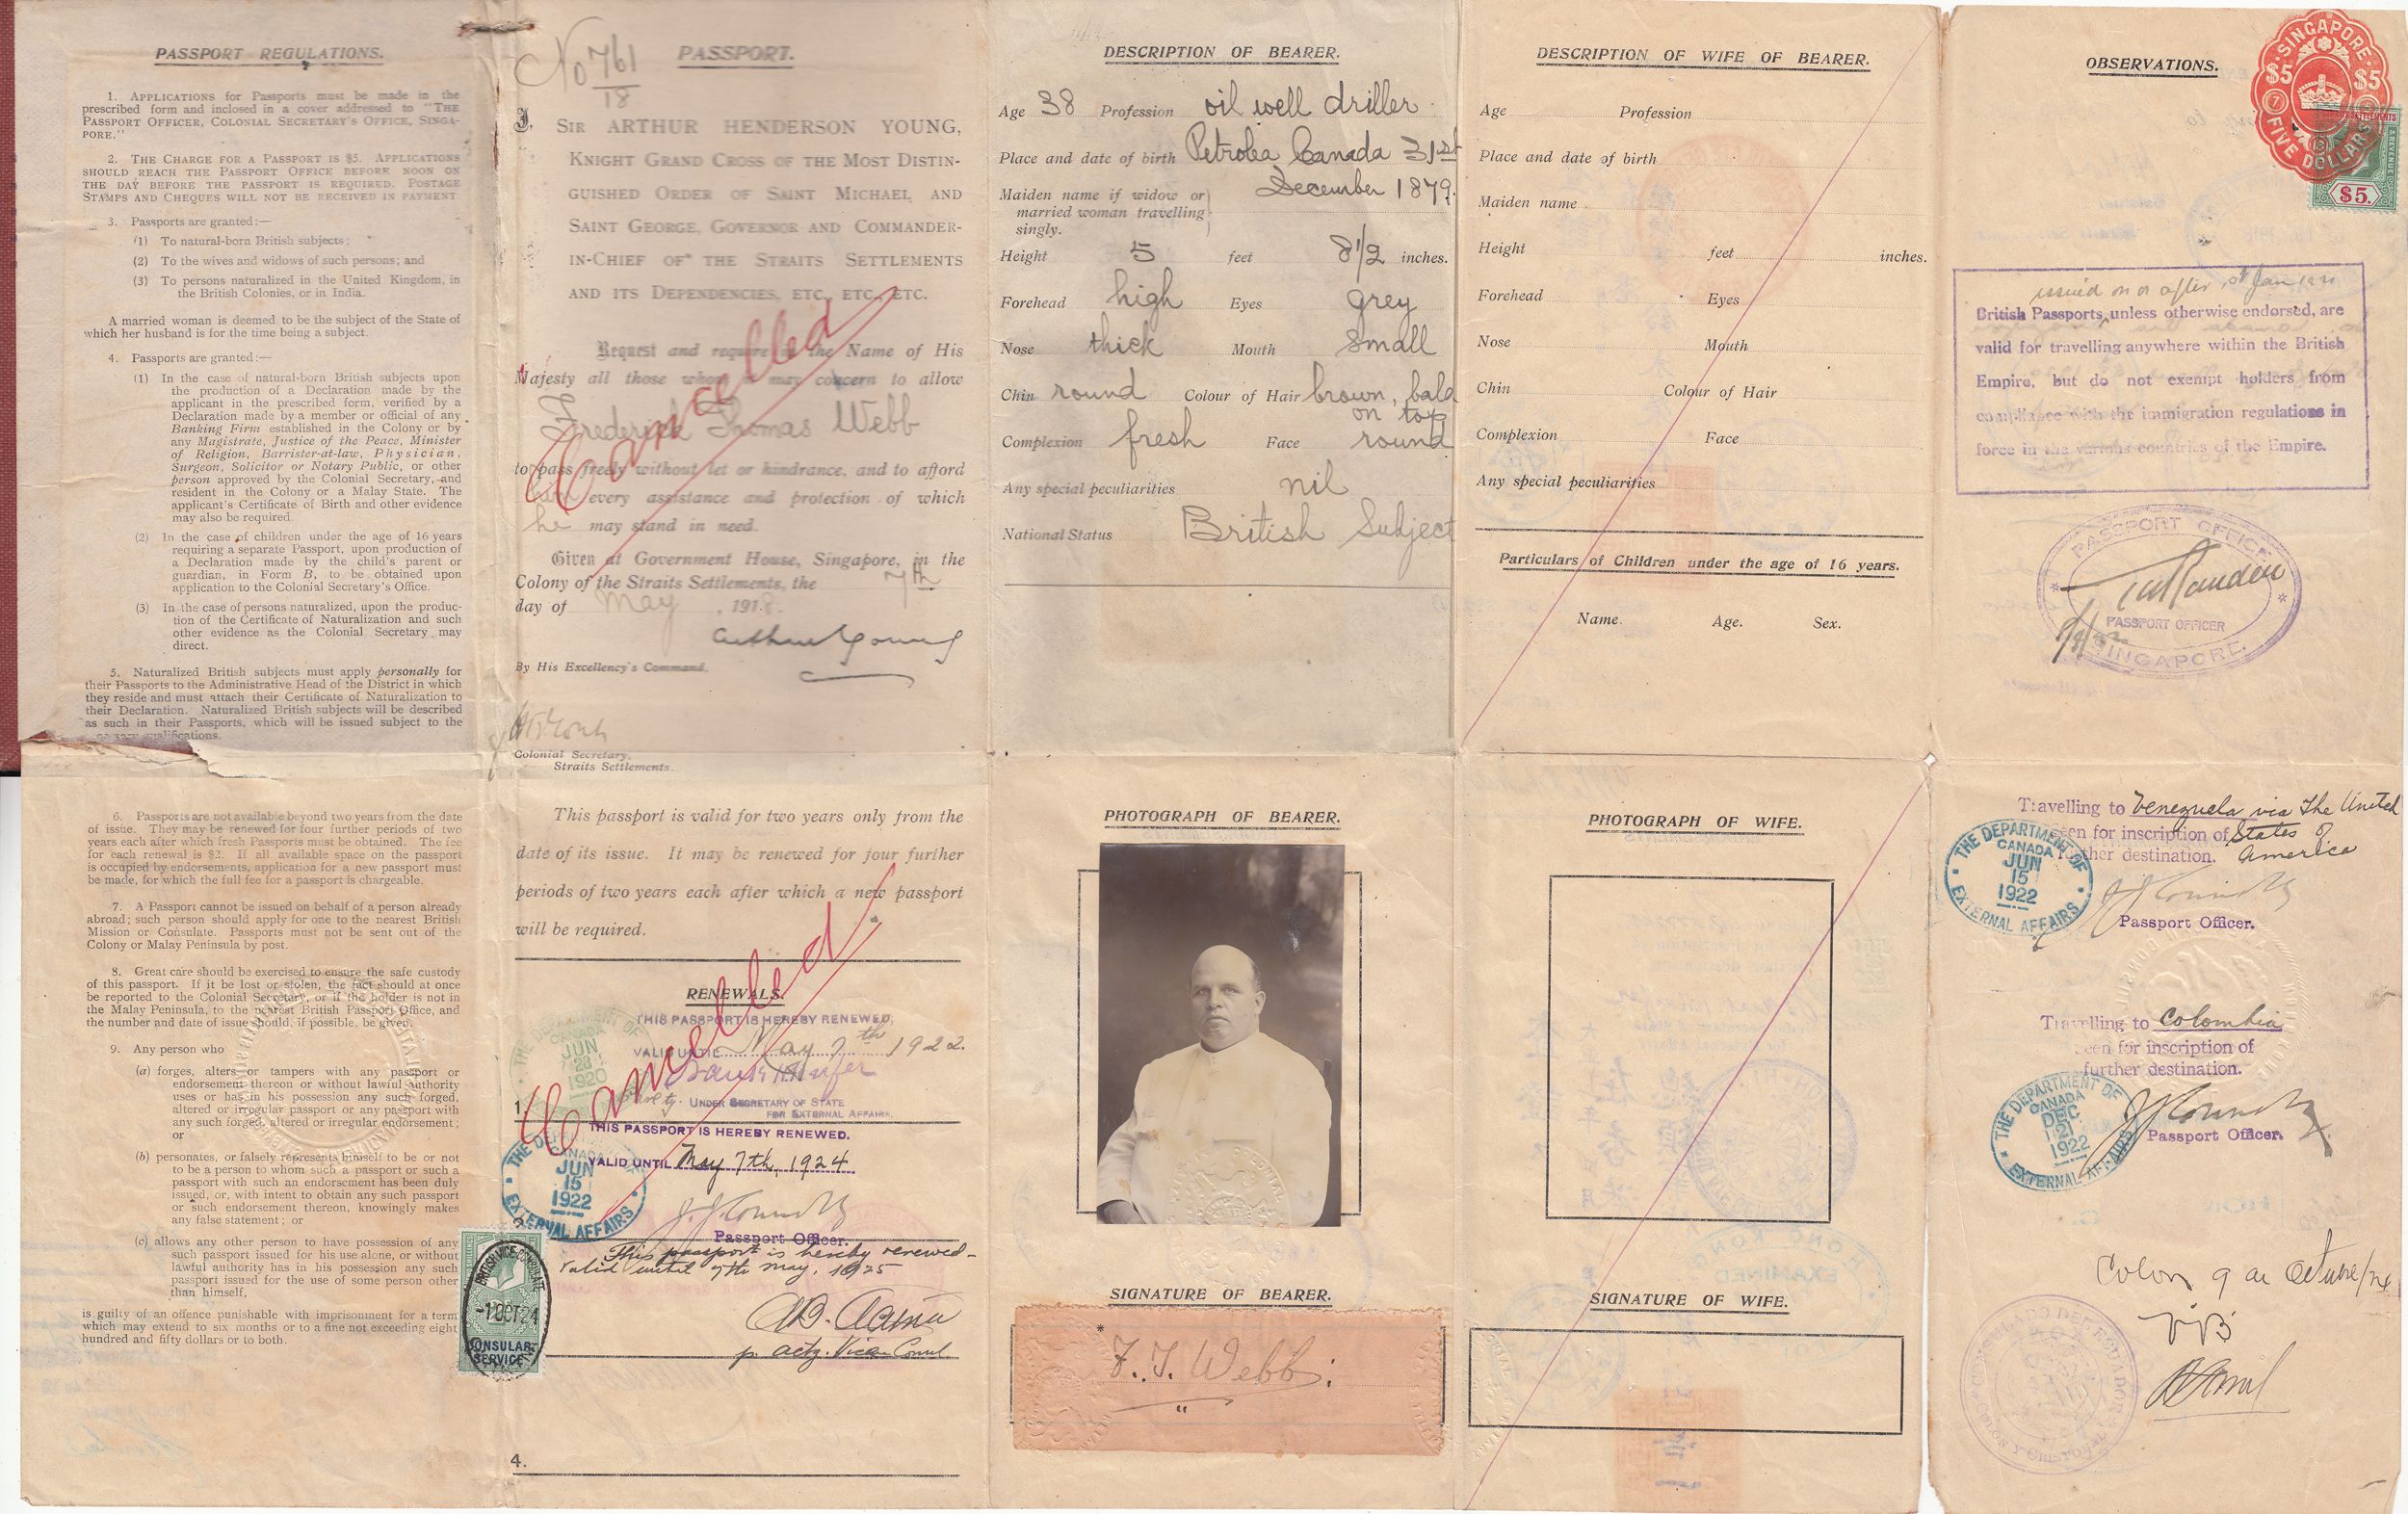 PASSPORT REGULATIONS.
1. APPLICATIONS for Passports must be made in the
prescribed form and inclosed in a cover addressed to "THE
PASSPORT OFFICER, COLONIAL SECRETARY'S OFFICE, SINGA-
PORE."
2. THE CHARGE FOR A PASSPORT IS $5. APPLICATIONS
SHOULD REACH THE PASSPORT OFFICE BEFORE NOON ON
THE DAY BEFORE THE PASSPORT IS REQUIRED. POSTAGE
STAMPS AND CHEQUES WILL NOT BE RECEIVED IN PAYMENT
3. Passports are granted:—
(1) To natural-born British subjects;
(2) To the wives and widows of such persons; and
(3) To persons naturalized in the United Kingdom, in
the British Colonies, or in India.
A married woman is deemed to be the subject of the State of
which her husband is for the time being a subject.
4. Passports are granted:—
(1) In the case of natural-born British subjects upon
the production of a Declaration made by the
applicant in the prescribed form, verified by a
Declaration made by a member or official of any
Banking Firm established in the Colony or by
any Magistrate, Justice of the Peace, Minister
of Religion, Barrister-at-law, Physician,
Surgeon, Solicitor or Notary Public, or other
person approved by the Colonial Secretary, and
resident in the Colony or a Malay State. The
applicant's Certificate of Birth and other evidence
may also be required.
(2) In the case of children under the age of 16 years
requiring a separate Passport, upon production of
a Declaration made by the child's parent or
guardian, in Form B, to be obtained upon
application to the Colonial Secretary's Office.
(3) In the case of persons naturalized, upon the produc-
tion of the Certificate of Naturalization and such
other evidence as the Colonial Secretary may
direct.
5. Naturalized British subjects must apply personally for
their Passports to the Administrative Head of the District in which
they reside and must attach their Certificate of Naturalization to
their Declaration. Naturalized British subjects will be described
as such in their Passports, which will be issued subject to the
qualifications.
6. Passports are not available beyond two years from the date
of issue. They may be renewed for four further periods of two
years each after which fresh Passports must be obtained. The fee
for each renewal is $2. If all available space on the passport
is occupied by endorsements, application for a new passport must
be made, for which the full fee for a passport is chargeable.
7. A Passport cannot be issued on behalf of a person already
abroad; such person should apply for one to the nearest British
Mission or Consulate. Passports must not be sent out of the
Colony or Malay Peninsula by post.
8. Great care should be exercised to ensure the safe custody
of this passport. If it be lost or stolen, the fact should at once
be reported to the Colonial Secretary, or if the holder is not in
the Malay Peninsula, to the nearest British Passport Office, and
the number and date of issue should, if possible, be given.
9. Any person who
(a) forges, alters or tampers with any passport or
endorsement thereon or without lawful authority
uses or has in his possession any such forged,
altered or irregular passport or any passport with
any such forged, altered or irregular endorsement;
or
(b) personates, or falsely represents himself to be or not
to be a person to whom such a passport or such a
passport with such an endorsement has been duly
issued, or, with intent to obtain any such passport
or such endorsement thereon, knowingly makes
any false statement; or
(c) allows any other person to have possession of any
such passport issued for his use alone, or without
lawful authority has in his possession any such
passport issued for the use of some person other
than himself,
is guilty of an offence punishable with imprisonment for a term
which may extend to six months or to a fine not exceeding eight
hundred and fifty dollars or to both.
No 761
18
PASSPORT.
I, SIR ARTHUR HENDERSON YOUNG,
KNIGHT GRAND CROSS OF THE MOST DISTIN-
GUISHED ORDER OF SAINT MICHAEL AND
SAINT GEORGE, GOVERNOR AND COMMANDER-
IN-CHIEF OF THE STRAITS SETTLEMENTS
AND ITS DEPENDENCIES, ETC., ETC., ETC.
Request and require in the Name of His
Majesty all those whom it may concern to allow
Frederick Thomas Webb
to pass freely without let or hindrance, and to afford
him every assistance and protection of which
he may stand in need.
Given at Government House, Singapore, in the
Colony of the Straits Settlements, the 7th
day of May, 1918.
Cancelled
Arthur Young
By His Excellency's Command.
Colonial Secretary,
Straits Settlements.
This passport is valid for two years only from the
date of its issue. It may be renewed for four further
periods of two years each after which a new passport
will be required.
RENEWALS.
THIS PASSPORT IS HEREBY RENEWED,
VALID UNTIL May 7th 1922.
THE DEPARTMENT OF
CANADA
JUN
28
1920
1.
UNDER SECRETARY OF STATE
FOR EXTERNAL AFFAIRS.
Cancelled
THIS PASSPORT IS HEREBY RENEWED.
VALID UNTIL May 7th, 1924
THE DEPARTMENT OF
CANADA
JUN
15
1922
EXTERNAL AFFAIRS
J. J. Connolly
Passport Officer.
This passport is hereby renewed -
valid until 7th May, 1925
p. actg. Vice Consul.
BRITISH VICE-CONSULATE
-1 OCT 24
CONSULAR
SERVICE
4.
DESCRIPTION OF BEARER.
Age 38 Profession oil well driller
Place and date of birth Petrolea Canada 31st
December 1879.
Maiden name if widow or
married woman travelling
singly.
Height 5 feet 8 1/2 inches.
Forehead high Eyes grey
Nose thick Mouth small
Chin round Colour of Hair brown, bald
on top
Complexion fresh Face round
Any special peculiarities nil
National Status British Subject
PHOTOGRAPH OF BEARER.
SIGNATURE OF BEARER.
*
F. T. Webb
DESCRIPTION OF WIFE OF BEARER.
Age Profession
Place and date of birth
Maiden name
Height feet inches.
Forehead Eyes
Nose Mouth
Chin Colour of Hair
Complexion Face
Any special peculiarities
Particulars of Children under the age of 16 years.
Name. Age. Sex.
PHOTOGRAPH OF WIFE.
HONG KONG
EXAMINED
SIGNATURE OF WIFE.
OBSERVATIONS.
SINGAPORE
$5 $5
FIVE DOLLARS
STRAITS SETTLEMENTS
REVENUE
$5.
issued on or after 1st Jan
British Passports, unless otherwise endorsed, are
valid for travelling anywhere within the British
Empire, but do not exempt holders from
compliance with the immigration regulations in
force in the various countries of the Empire.
PASSPORT OFFICE
PASSPORT OFFICER
SINGAPORE
Travelling to Venezuela via the United
Seen for inscription of States of
further destination. America
THE DEPARTMENT OF
CANADA
JUN
15
1922
EXTERNAL AFFAIRS
J J Connolly
Passport Officer.
Travelling to Colombia
Seen for inscription of
further destination.
THE DEPARTMENT OF
CANADA
DEC
21
1922
EXTERNAL AFFAIRS
J J Connolly
Passport Officer.
Colon 9 de Octubre/24
CONSULADO DEL ECUADOR
COLON Y CRISTOBAL